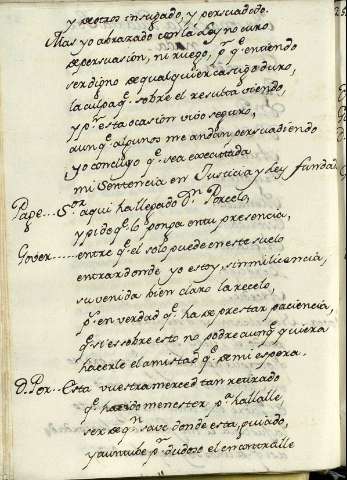 y de otros insugado, y persuadido.
Mas yo abrazado con la Ley no curo
de persuasion, ni ruego, pr. qe. entiendo
ser digno de qualquier castigo duro,
la culpa qe. sobre el resulta siendo,
y pr. esta ocasion vivo seguro,
aunqe. algunos me andan persuadiendo
yo concluyo qe. sea executada
mi Sentencia en Justicia y Ley fundada
Page .. Sor. aqui ha llegado Dn. Porcelo,
y pide qe. lo ponga en tu presencia,
Gover.... entre qe. el solo puede en este suelo
entrar donde yo estoy, sin mi licencia,
su venida bien claro la recelo,
pr. en verdad qe. ha de prestar paciencia,
qe. si es sobre esto no podre aunqe. quiera
hacerle el amistad qe. de mi espera.
D. Por.. Esta vuestra merced tan retirado
qe. ha sido menester pa. hallalle,
ser de qn. save donde esta, guiado,
y aun tube pr. dudoso el encontralle